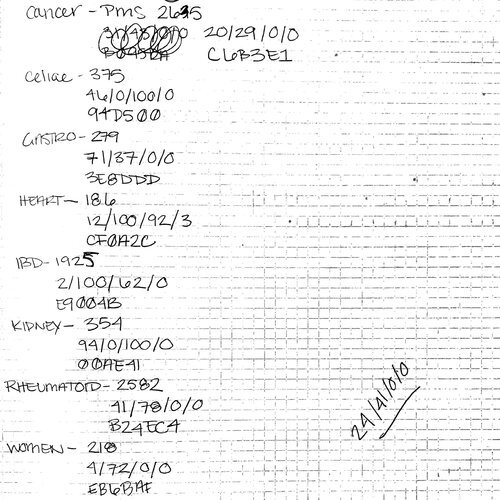 cancer - PMS 2635
20/29/0/0
C6B3E1
Celiac - 375
46/0/100/0
94D500
GASTRO - 279
71/37/0/0
3E8DDD
HEART - 186
12/100/92/3
CF0A2C
IBD - 1925
2/100/62/0
E9004B
KIDNEY - 354
94/0/100/0
00AE41
RHEUMATOID - 2582
41/78/0/0
B24EC4
WOMEN - 218
4/72/0/0
EB6BAF
24/41/0/0